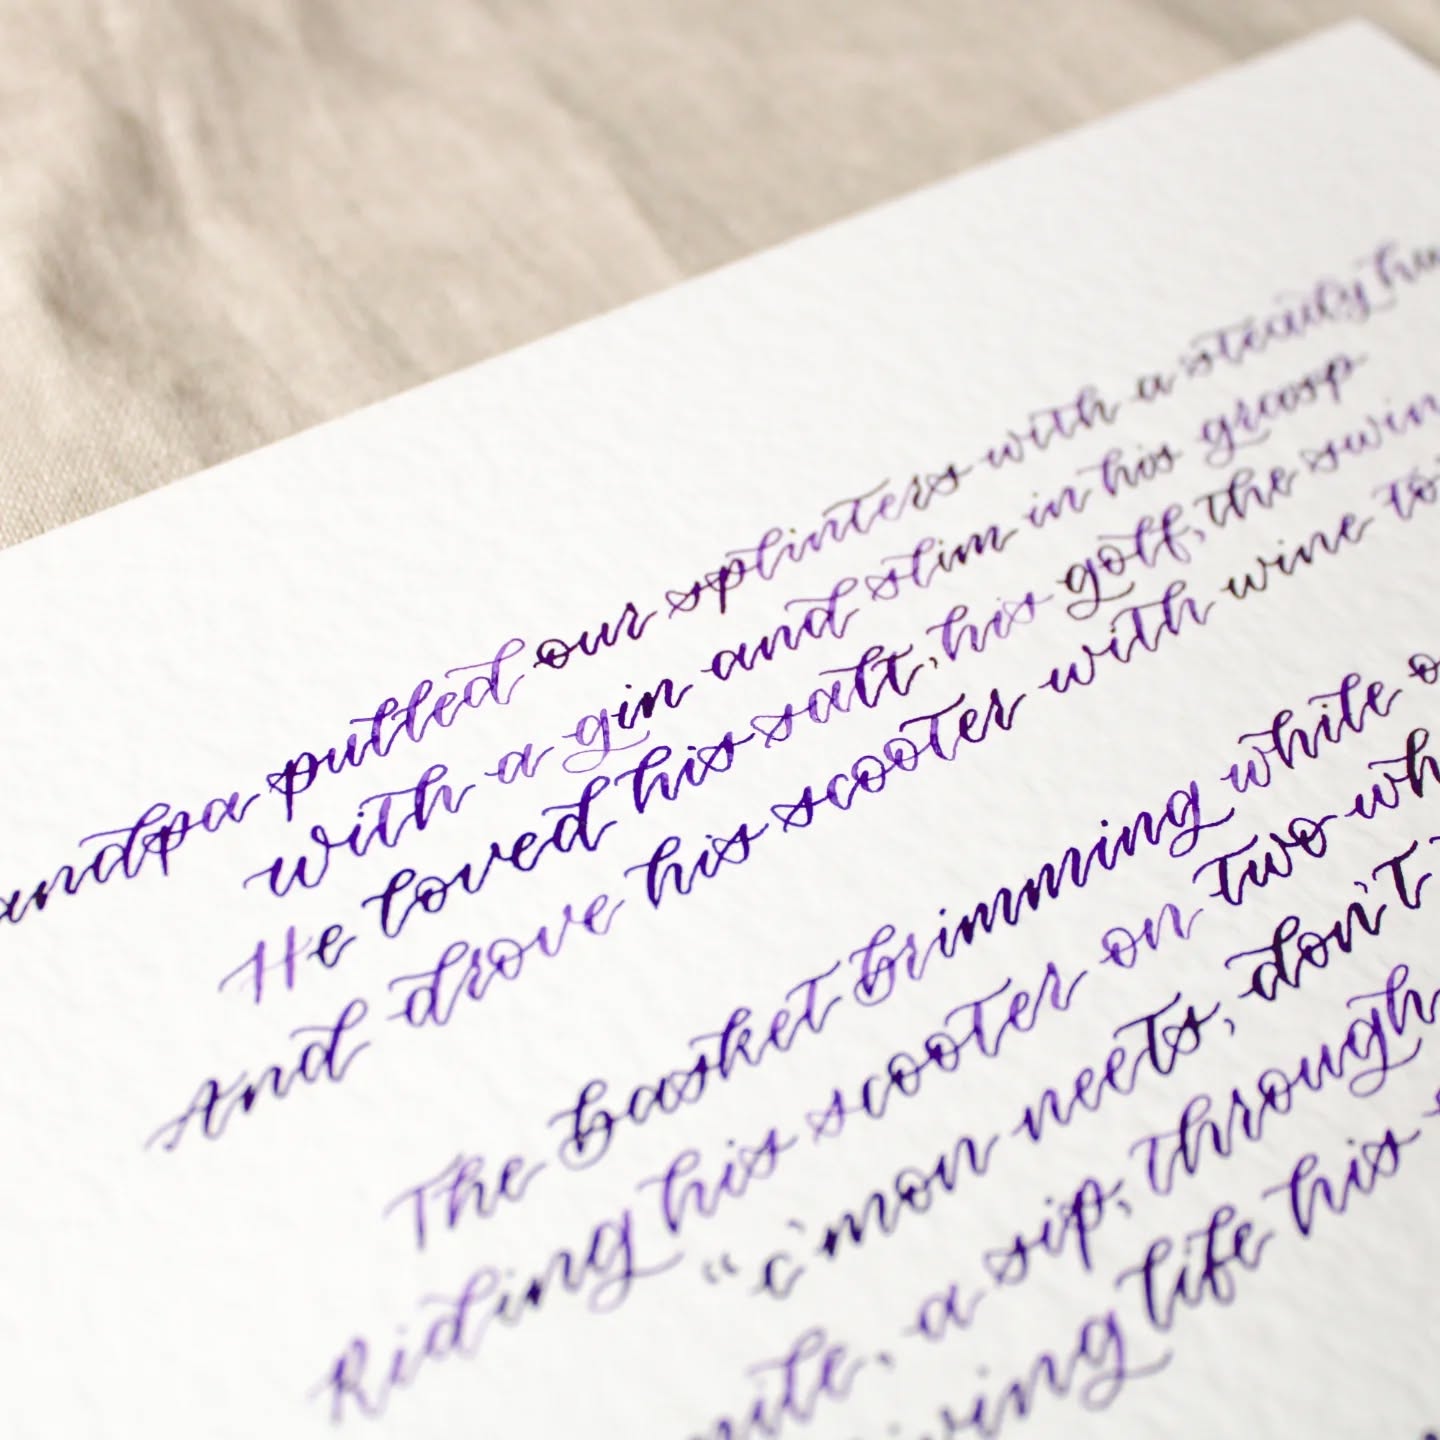 andpa pulled our splinters with a steady
with a gin and slim in his grasp
He loved his salt, his golf, the swin
And drove his scooter with wine to
The basket brimming white o
Riding his scooter on two wh
"c'mon neets, don't
a sip, through
life his